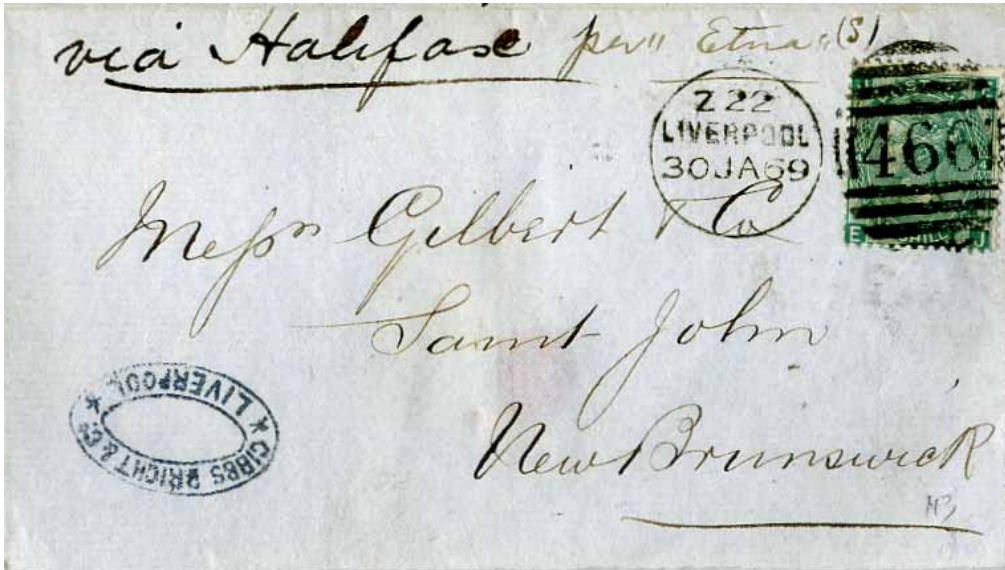 via Halifax per "Etna" (S)
Z 22
LIVERPOOL
30 JA 69
466
E J
Messrs Gilbert & Co
Saint John
New Brunswick
GIBBS BRIGHT & Co. * LIVERPOOL *